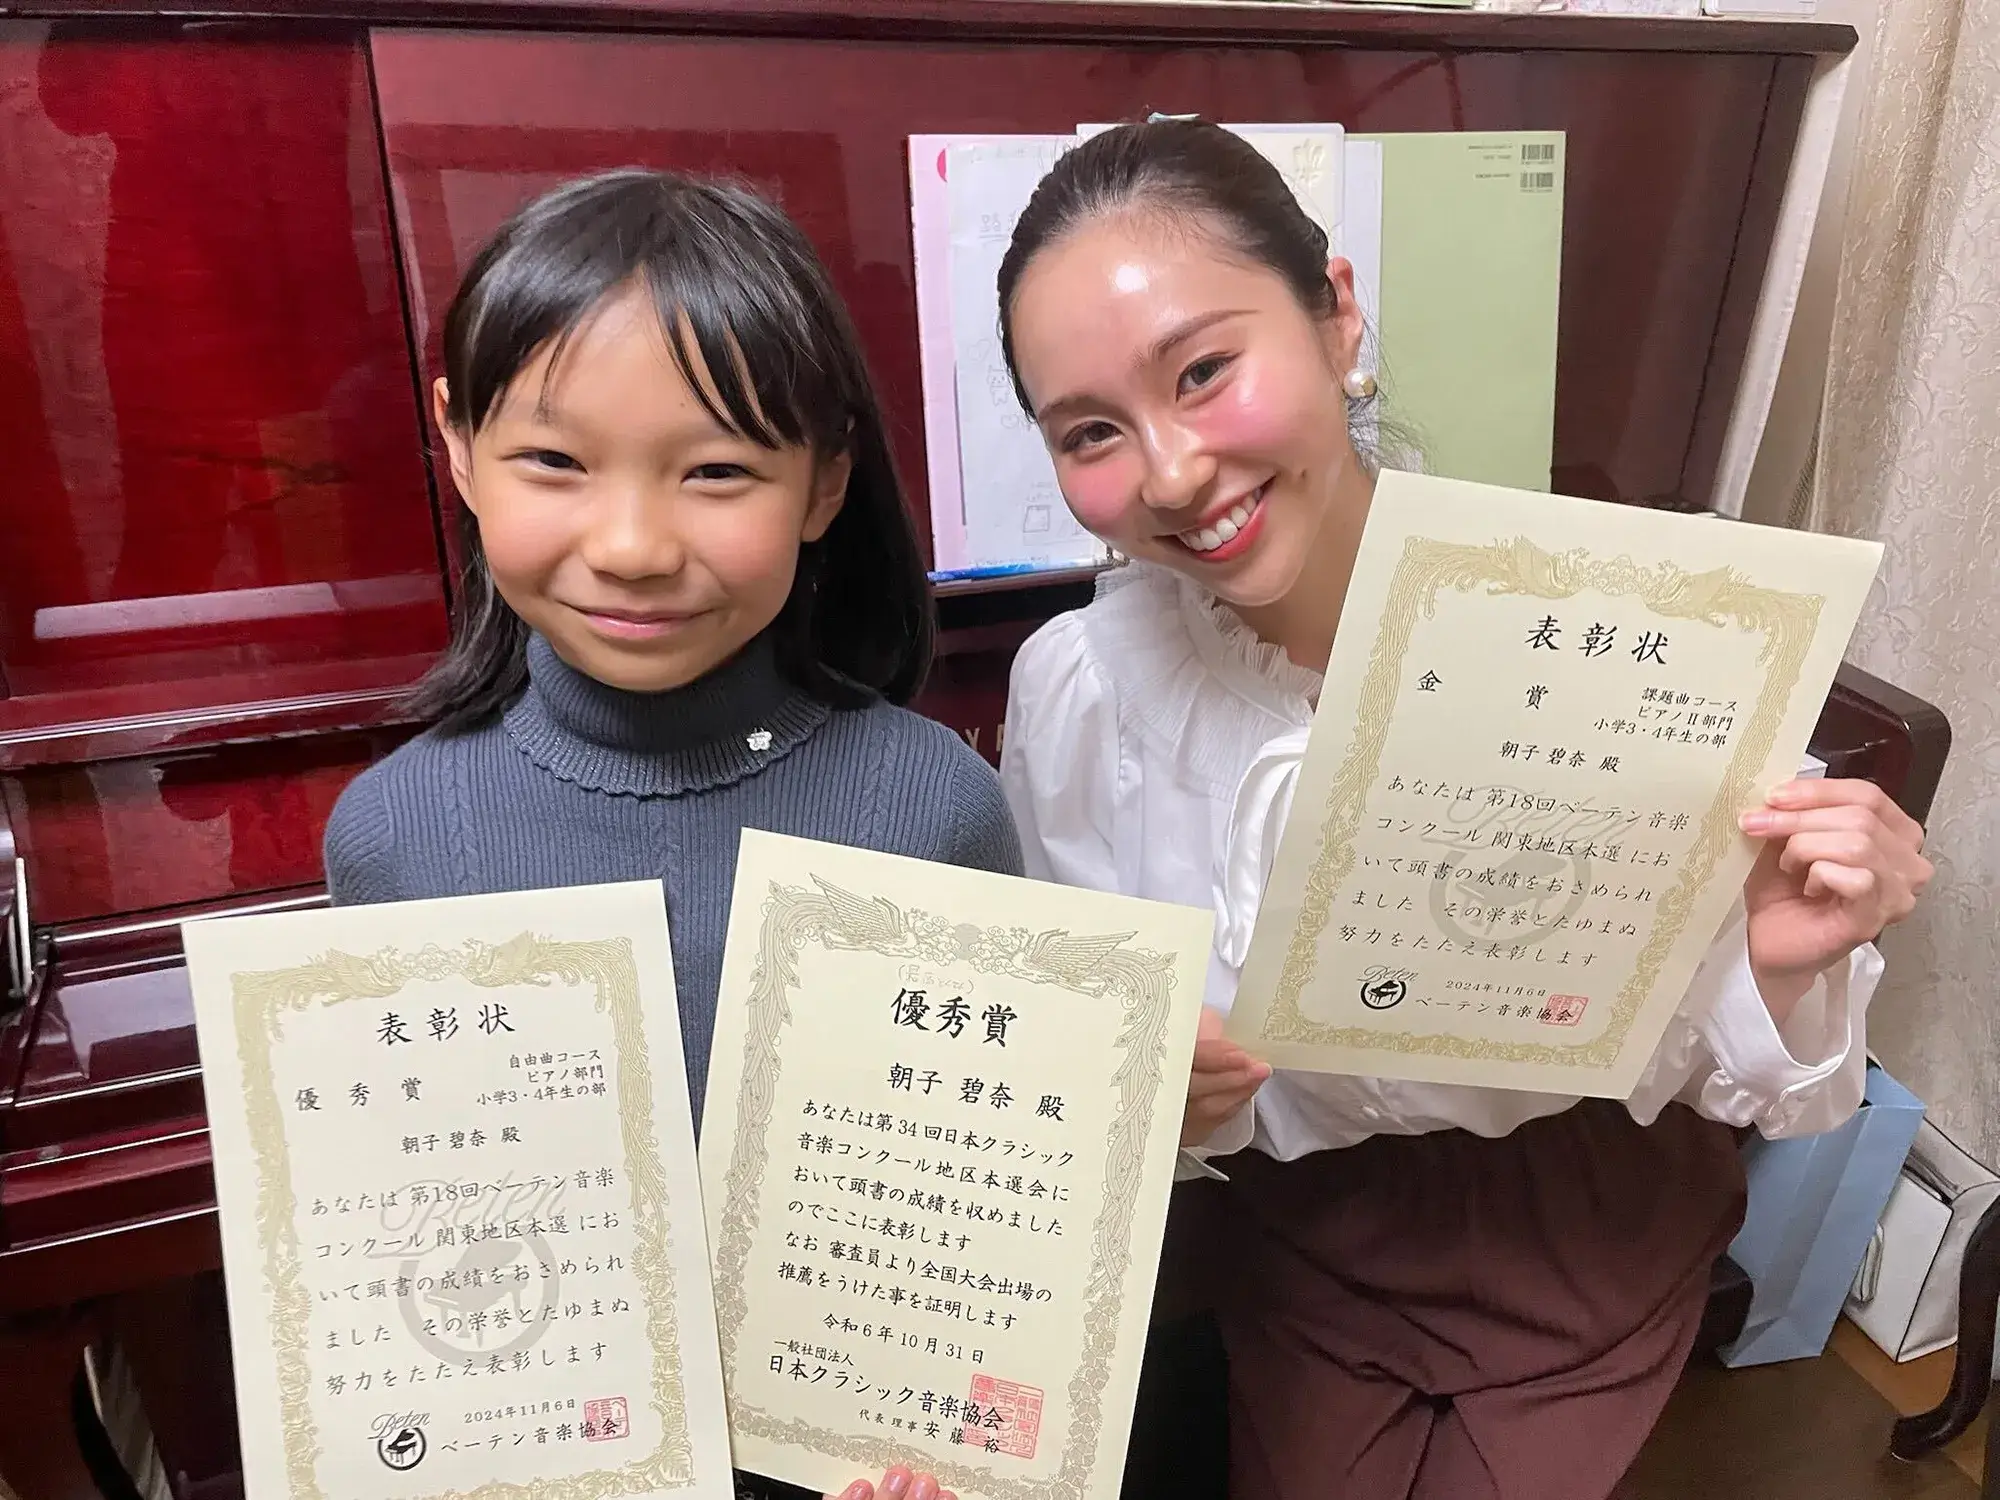 表彰状
優秀賞
自由曲コース
ピアノ部門
小学3・4年生の部
朝子 碧奈 殿
あなたは 第18回ベーテン音楽
コンクール 関東地区本選 にお
いて頭書の成績をおさめられ
ました その栄誉とたゆまぬ
努力をたたえ表彰します
Beten
2024年11月6日
ベーテン音楽協会
優秀賞
朝子 碧奈 殿
あなたは第34回日本クラシック
音楽コンクール地区本選会に
おいて頭書の成績を収めました
のでここに表彰します
なお 審査員より全国大会出場の
推薦をうけた事を証明します
令和6年10月31日
一般社団法人
日本クラシック音楽協会
代表理事 安藤 裕
表彰状
金賞
課題曲コース
ピアノⅡ部門
小学3・4年生の部
朝子 碧奈 殿
あなたは 第18回ベーテン音楽
コンクール 関東地区本選 にお
いて頭書の成績をおさめられ
ました その栄誉とたゆまぬ
努力をたたえ表彰します
Beten
2024年11月6日
ベーテン音楽協会